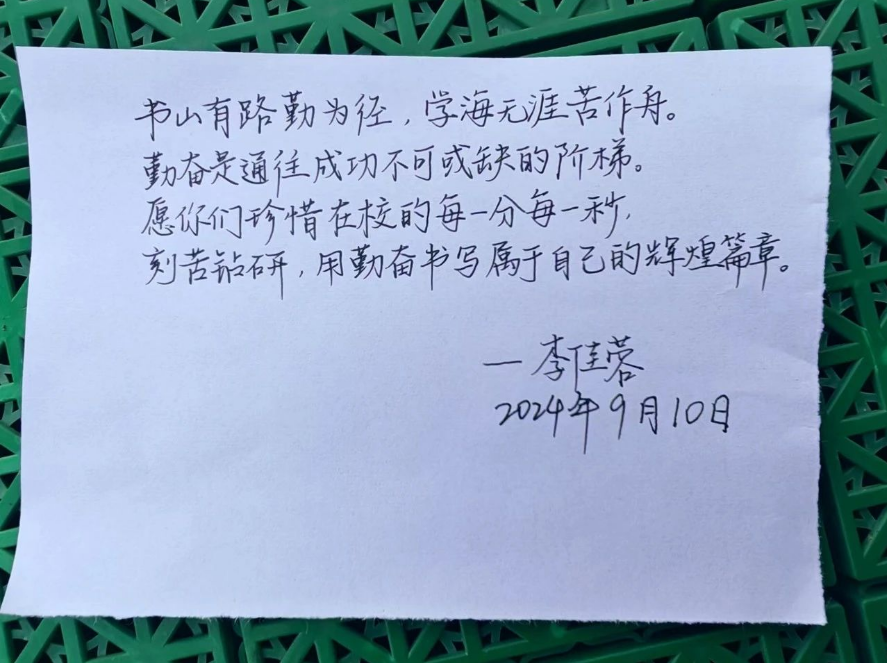 书山有路勤为径，学海无涯苦作舟。
勤奋是通往成功不可或缺的阶梯。
愿你们珍惜在校的每一分每一秒，
刻苦钻研，用勤奋书写属于自己的辉煌篇章。
—李佳蓉
2024年9月10日